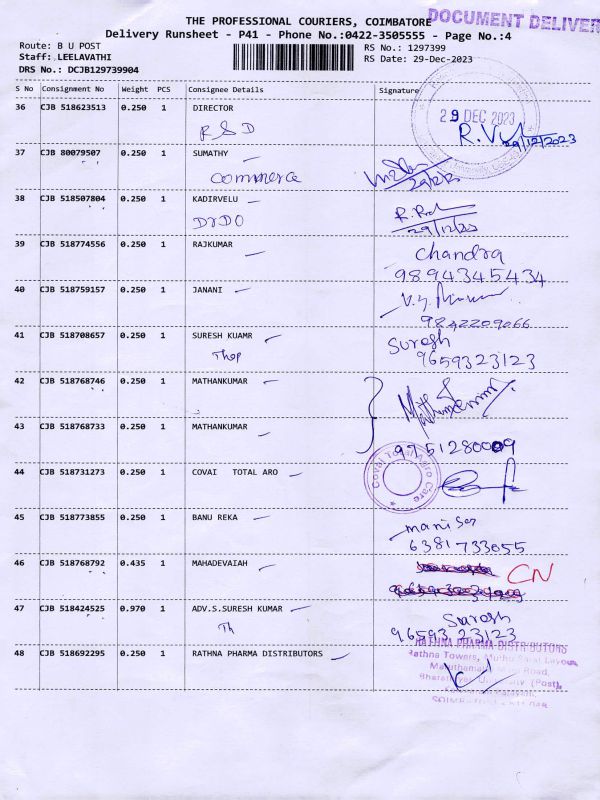 THE PROFESSIONAL COURIERS, COIMBATORE
DOCUMENT DELIVER
Delivery Runsheet - P41 - Phone No.:0422-3505555 - Page No.:4
Route: B U POST
RS No.: 1297399
Staff: LEELAVATHI
RS Date: 29-Dec-2023
DRS No.: DCJB129739904
S No Consignment No Weight PCS Consignee Details Signature
36 CJB 518623513 0.250 1 DIRECTOR
29 DEC 2023
R S D
29/12/2023
37 CJB 80079507 0.250 1 SUMATHY
Commerce
38 CJB 518507804 0.250 1 KADIRVELU
DRDO
29/12/23
39 CJB 518774556 0.250 1 RAJKUMAR
Chandra
9894345434
40 CJB 518759157 0.250 1 JANANI
9842209066
41 CJB 518708657 0.250 1 SURESH KUAMR
Suresh
9659323123
42 CJB 518768746 0.250 1 MATHANKUMAR
43 CJB 518768733 0.250 1 MATHANKUMAR
9751280009
44 CJB 518731273 0.250 1 COVAI TOTAL ARO
Covai Total Agro Care
45 CJB 518773855 0.250 1 BANU REKA
6381733055
46 CJB 518768792 0.435 1 MAHADEVAIAH
CN
47 CJB 518424525 0.970 1 ADV.S.SURESH KUMAR
Th
Suresh
9659323123
48 CJB 518692295 0.250 1 RATHNA PHARMA DISTRIBUTORS
RATHNA PHARMA DISTRIBUTORS
Rathna Towers,